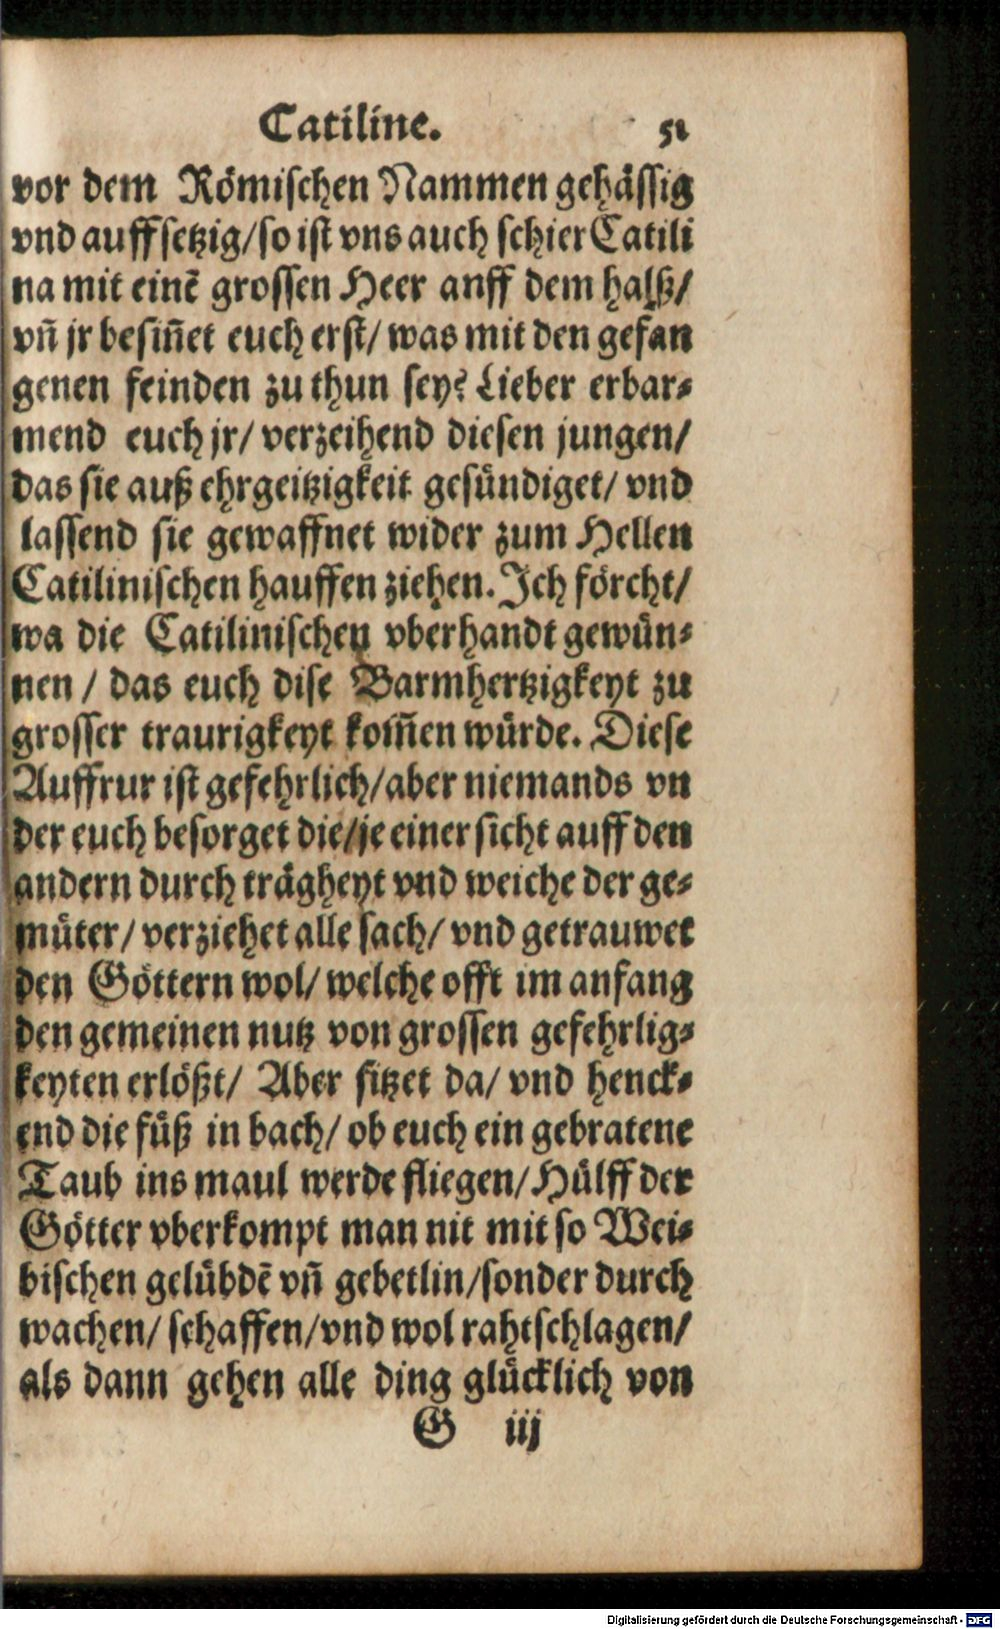 Catiline. 51
vor dem Römischen Nammen gehässig
vnd auffsetzig/so ist vns auch schier Catili
na mit einē grossen Heer anff dem halß/
vn̄ jr besin̄et euch erst/ was mit den gefan
genen feinden zu thun sey? Lieber erbar⸗
mend euch jr/ verzeihend diesen jungen/
das sie auß ehrgeitzigkeit gesündiget/ vnd
lassend sie gewaffnet wider zum Hellen
Catilinischen hauffen ziehen. Ich förcht/
wa die Catilinischen vberhandt gewün⸗
nen / das euch dise Barmhertzigkeyt zu
grosser traurigkeyt kom̄en würde. Diese
Auffrur ist gefehrlich/aber niemands vn
der euch besorget die/je einer sicht auff den
andern durch trägheyt vnd weiche der ge⸗
müter/ verziehet alle sach/ vnd getrauwet
den Göttern wol/ welche offt im anfang
den gemeinen nutz von grossen gefehrlig⸗
keyten erlößt/ Aber sitzet da/ vnd henck⸗
end die füß in bach/ ob euch ein gebratene
Taub ins maul werde fliegen/ Hülff der
Götter vberkompt man nit mit so Wei⸗
bischen gelübdē vn̄ gebetlin/sonder durch
wachen/ schaffen/vnd wol rahtschlagen/
als dann gehen alle ding glücklich von
G iij
Digitalisierung gefördert durch die Deutsche Forschungsgemeinschaft - DFG